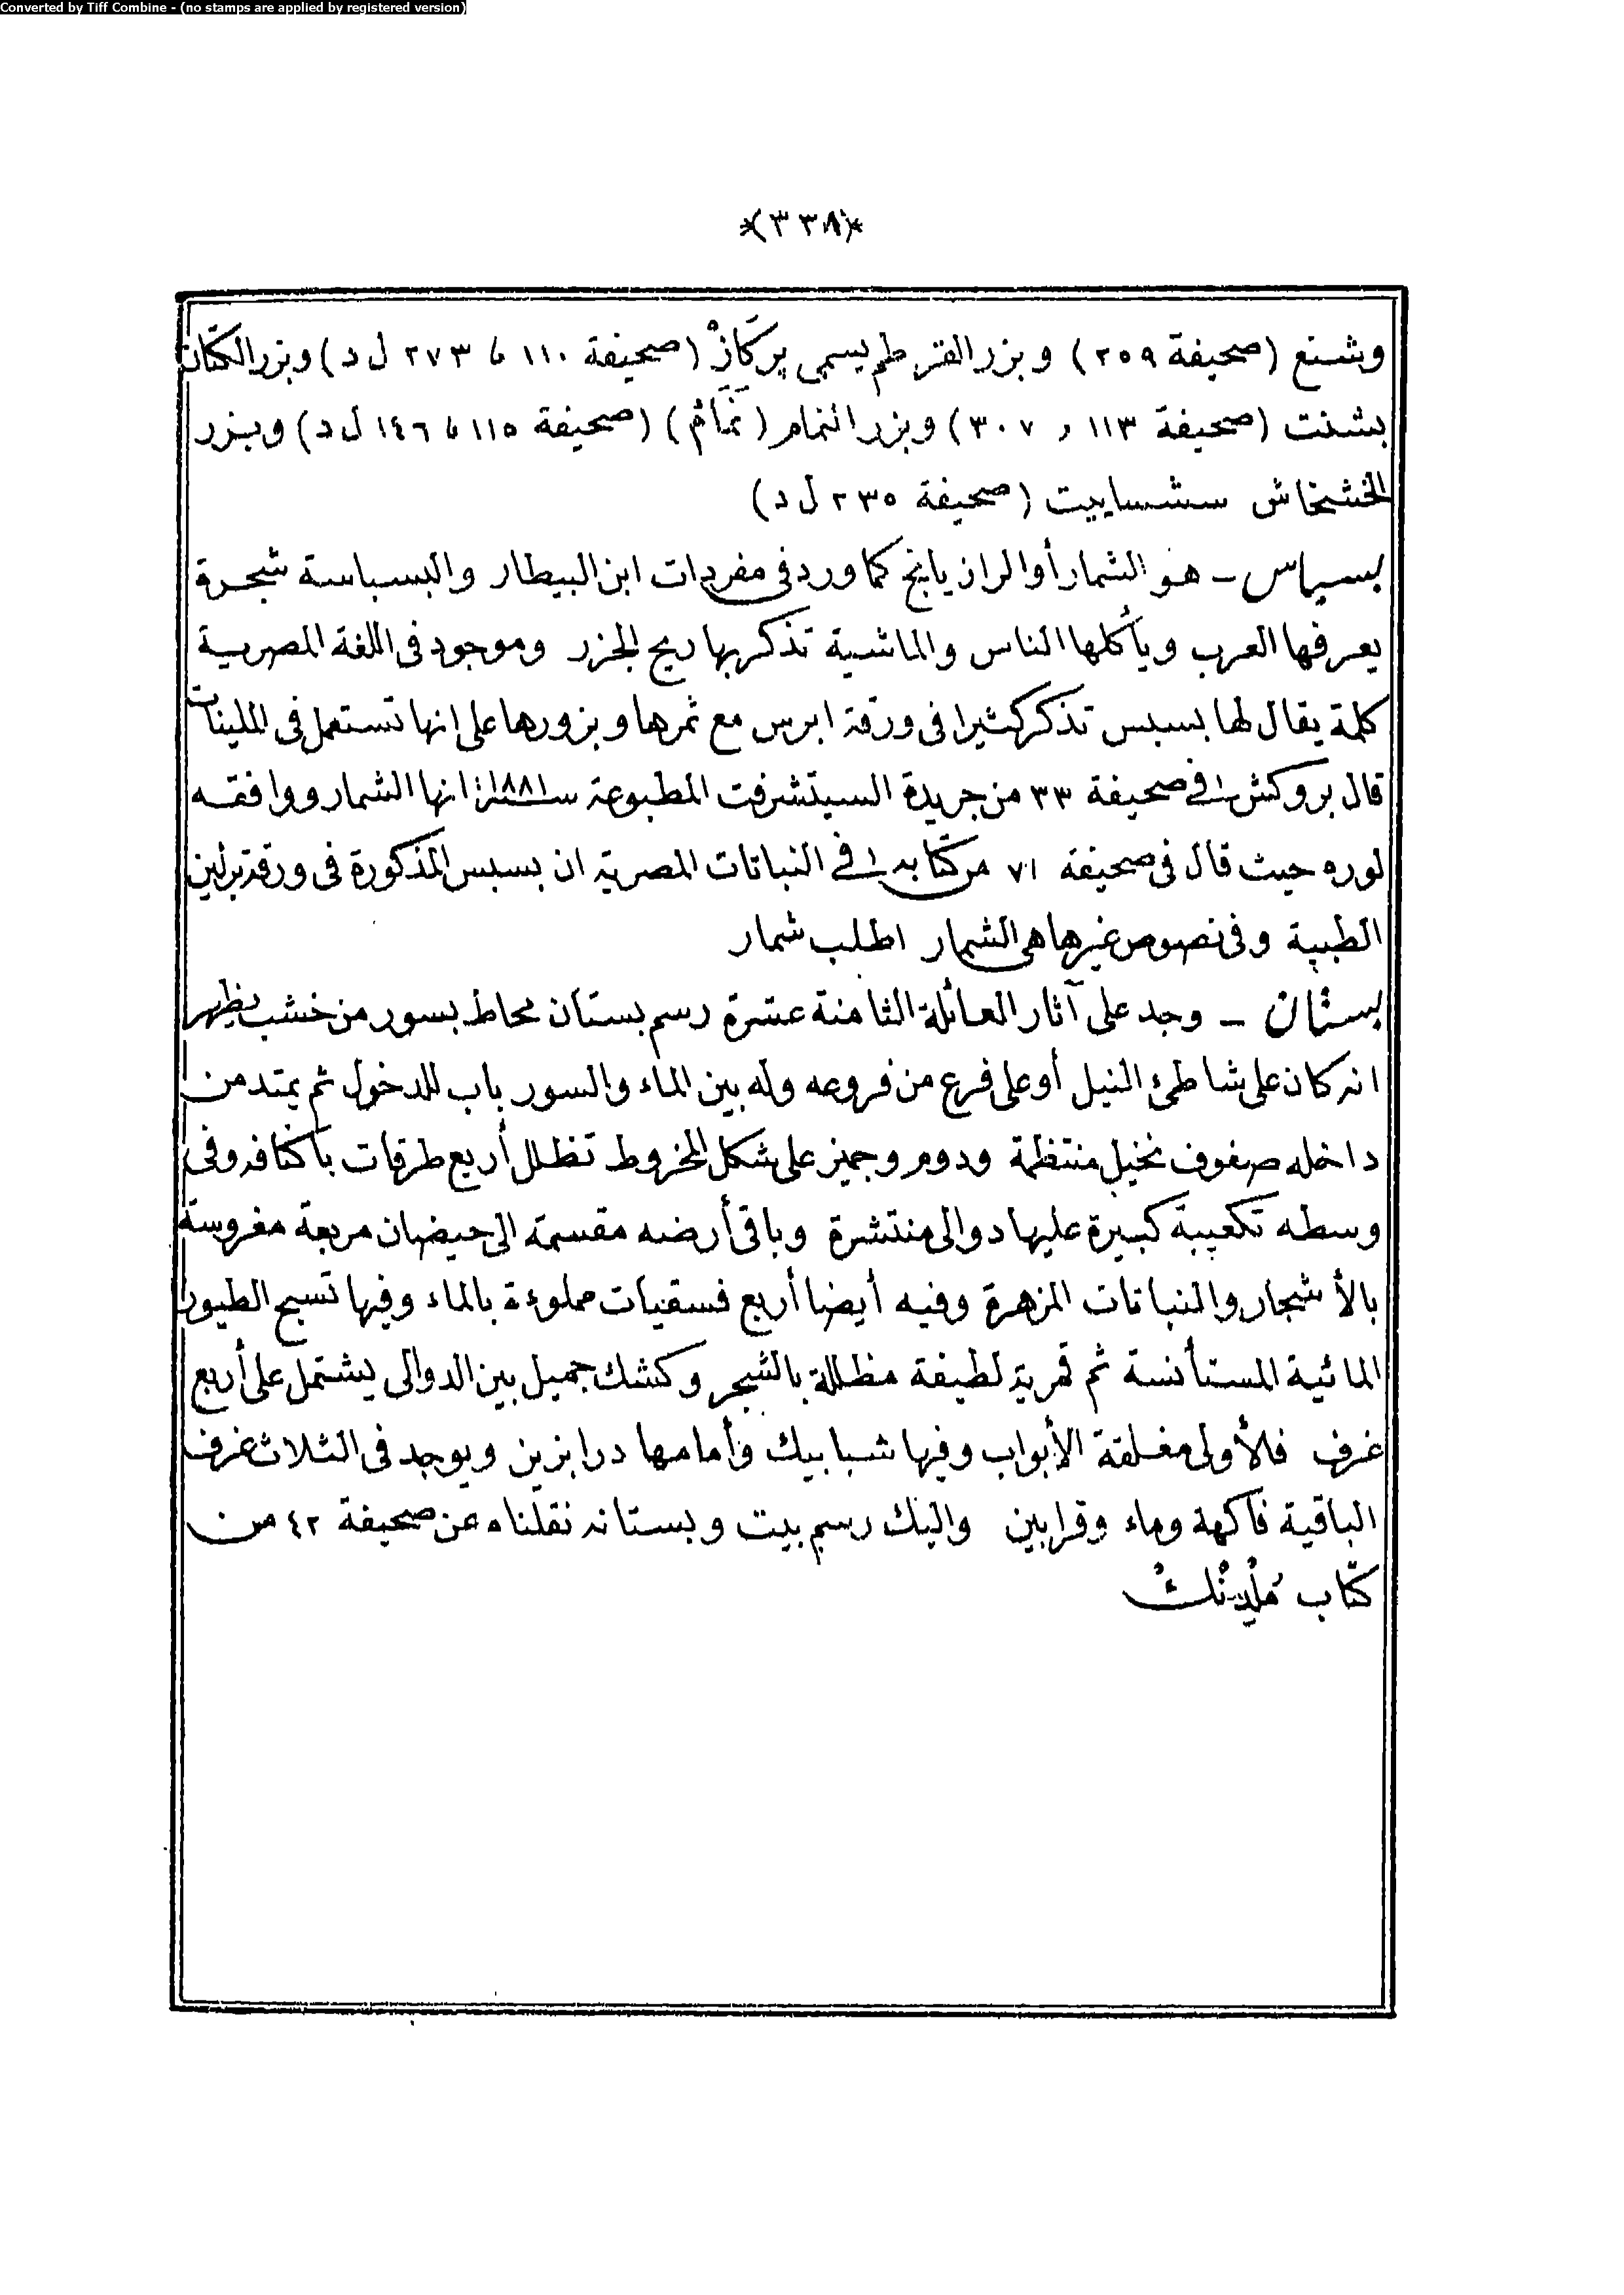 Converted by Tiff Combine - (no stamps are applied by registered version)
*(٣٣٨)*
وشنع (صحيفة ٢٥٩) وبزر القرطم يسمى پركاز (صحيفة ١١٠ ، ٢٧٣ ل د) وبزر الكتان
بشنت (صحيفة ١١٣ و ٣٠٧) وبزر النمام (نمام) (صحيفة ١١٥ ، ١٤٦ ل د) وبزر
الخشخاش سشسابيت (صحيفة ٢٣٥ ل د)
بسباس – هو الشمار أو الرازيانج كما ورد في مفردات ابن البيطار والبسباسة شجرة
يعرفها العرب ويأكلها الناس والماشية تذكر بها ريح الجزر وموجود في اللغة المصرية
كلمة يقال لها بسبس تذكر كثيرا في ورقة ابرس مع ثمرها وبزورها على انها تستعمل في الملينات
قال بروكش في صحيفة ٣٣ من جريدة السيتشرفت المطبوعة سنة ١٨٨١ انها الشمار ووافقه
لوره حيث قال في صحيفة ٧١ من كتابه في النباتات المصرية ان بسبس المذكورة في ورقة برلين
الطبية وفي نصوص غيرها هي الشمار اطلب شمار
بستان – وجد على آثار العائلة الثامنة عشرة رسم بستان محاط بسور من خشب يظهر
انه كان على شاطئ النيل أو على فرع من فروعه وله بين الماء والسور باب للدخول ثم يمتد من
داخله صفوف نخيل منتظمة ودوم وجميز على شكل المخروط تظلل أربع طرقات بأكنافه وفى
وسطه تكعيبة كبيرة عليها دوالى منتشرة وباقى أرضه مقسمة الى حيضان مربعة مغروسة
بالأشجار والنباتات المزهرة وفيه أيضا أربع فسقيات مملوءة بالماء وفيها تسبح الطيور
المائية المستأنسة ثم قمرية لطيفة مظللة بالشجر وكشك جميل بين الدوالى يشتمل على أربع
غرف فالأولى مغلقة الأبواب وفيها شبابيك وأمامها درابزين ويوجد فى الثلاث غرف
الباقية فاكهة وماء وقرابين واليك رسم بيت وبستانه نقلناه عن صحيفة ٤٢ من
كتاب